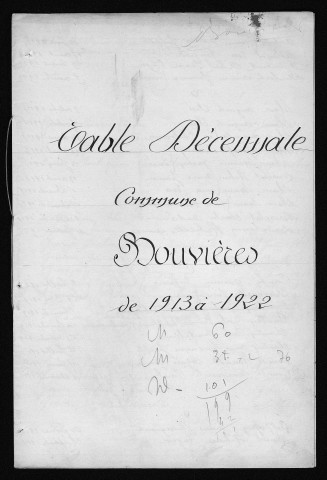 Table Décennale
Commune de
Bouvières
de 1913 à 1922
N 60
M
D - 101
199